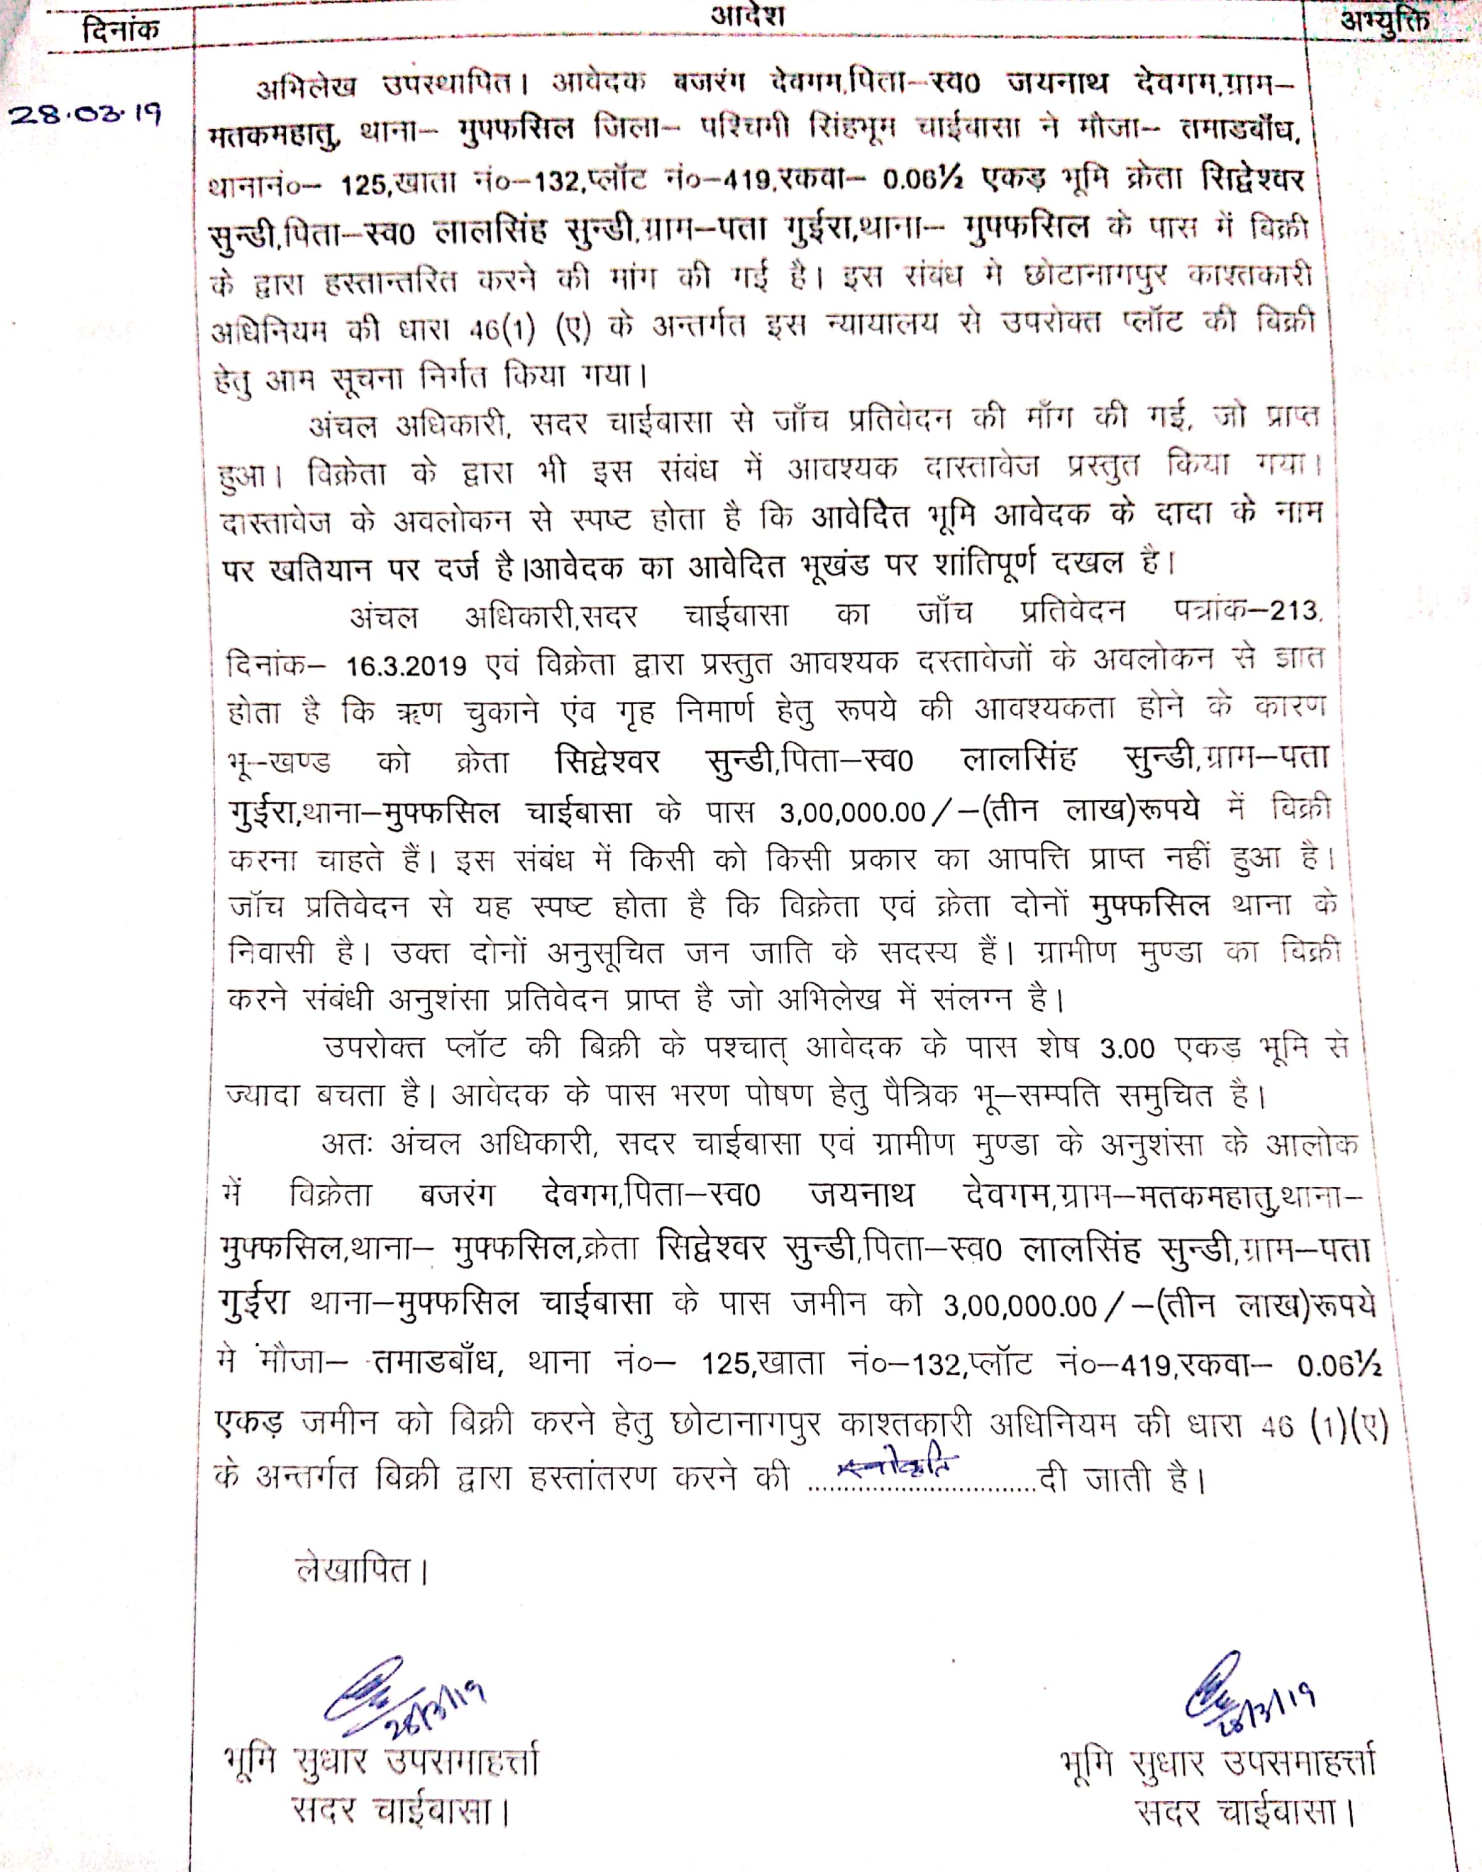 दिनांक आदेश अभ्युक्ति
28.03.19
अभिलेख उपस्थापित। आवेदक बजरंग देवगम,पिता–स्व0 जयनाथ देवगम,ग्राम–
मतकमहातु, थाना– मुफ्फसिल जिला– पश्चिमी सिंहभूम चाईबासा ने मौजा– तमाडबाँध,
थानानं०– 125,खाता नं०–132,प्लॉट नं०–419,रकवा– 0.06½ एकड़ भूमि क्रेता सिद्वेश्वर
सुन्डी,पिता–स्व0 लालसिंह सुन्डी,ग्राम–पता गुईरा,थाना– मुफ्फसिल के पास में बिक्री
के द्वारा हस्तान्तरित करने की मांग की गई है। इस संबंध मे छोटानागपुर काश्तकारी
अधिनियम की धारा 46(1) (ए) के अन्तर्गत इस न्यायालय से उपरोक्त प्लॉट की बिक्री
हेतु आम सूचना निर्गत किया गया।
अंचल अधिकारी, सदर चाईबासा से जाँच प्रतिवेदन की माँग की गई, जो प्राप्त
हुआ। विक्रेता के द्वारा भी इस संबंध में आवश्यक दास्तावेज प्रस्तुत किया गया।
दास्तावेज के अवलोकन से स्पष्ट होता है कि आवेदित भूमि आवेदक के दादा के नाम
पर खतियान पर दर्ज है।आवेदक का आवेदित भूखंड पर शांतिपूर्ण दखल है।
अंचल अधिकारी,सदर चाईबासा का जाँच प्रतिवेदन पत्रांक–213,
दिनांक– 16.3.2019 एवं विक्रेता द्वारा प्रस्तुत आवश्यक दस्तावेजों के अवलोकन से ज्ञात
होता है कि ऋण चुकाने एंव गृह निमार्ण हेतु रूपये की आवश्यकता होने के कारण
भू–खण्ड को क्रेता सिद्वेश्वर सुन्डी,पिता–स्व0 लालसिंह सुन्डी,ग्राम–पता
गुईरा,थाना–मुफ्फसिल चाईबासा के पास 3,00,000.00/–(तीन लाख)रूपये में बिक्री
करना चाहते हैं। इस संबंध में किसी को किसी प्रकार का आपत्ति प्राप्त नहीं हुआ है।
जॉच प्रतिवेदन से यह स्पष्ट होता है कि विक्रेता एवं क्रेता दोनों मुफ्फसिल थाना के
निवासी है। उक्त दोनों अनुसूचित जन जाति के सदस्य हैं। ग्रामीण मुण्डा का बिक्री
करने संबंधी अनुशंसा प्रतिवेदन प्राप्त है जो अभिलेख में संलग्न है।
उपरोक्त प्लॉट की बिक्री के पश्चात् आवेदक के पास शेष 3.00 एकड़ भूमि से
ज्यादा बचता है। आवेदक के पास भरण पोषण हेतु पैत्रिक भू–सम्पति समुचित है।
अतः अंचल अधिकारी, सदर चाईबासा एवं ग्रामीण मुण्डा के अनुशंसा के आलोक
में विक्रेता बजरंग देवगम,पिता–स्व0 जयनाथ देवगम,ग्राम–मतकमहातु,थाना–
मुफ्फसिल,थाना– मुफ्फसिल,क्रेता सिद्वेश्वर सुन्डी,पिता–स्व0 लालसिंह सुन्डी,ग्राम–पता
गुईरा थाना–मुफ्फसिल चाईबासा के पास जमीन को 3,00,000.00/–(तीन लाख)रूपये
मे मौजा– तमाडबाँध, थाना नं०– 125,खाता नं०–132,प्लॉट नं०–419,रकवा– 0.06½
एकड़ जमीन को बिक्री करने हेतु छोटानागपुर काश्तकारी अधिनियम की धारा 46 (1)(ए)
के अन्तर्गत बिक्री द्वारा हस्तांतरण करने की स्वीकृति दी जाती है।
लेखापित।
28/3/19 28/3/19
भूमि सुधार उपसमाहर्त्ता भूमि सुधार उपसमाहर्त्ता
सदर चाईबासा। सदर चाईबासा।